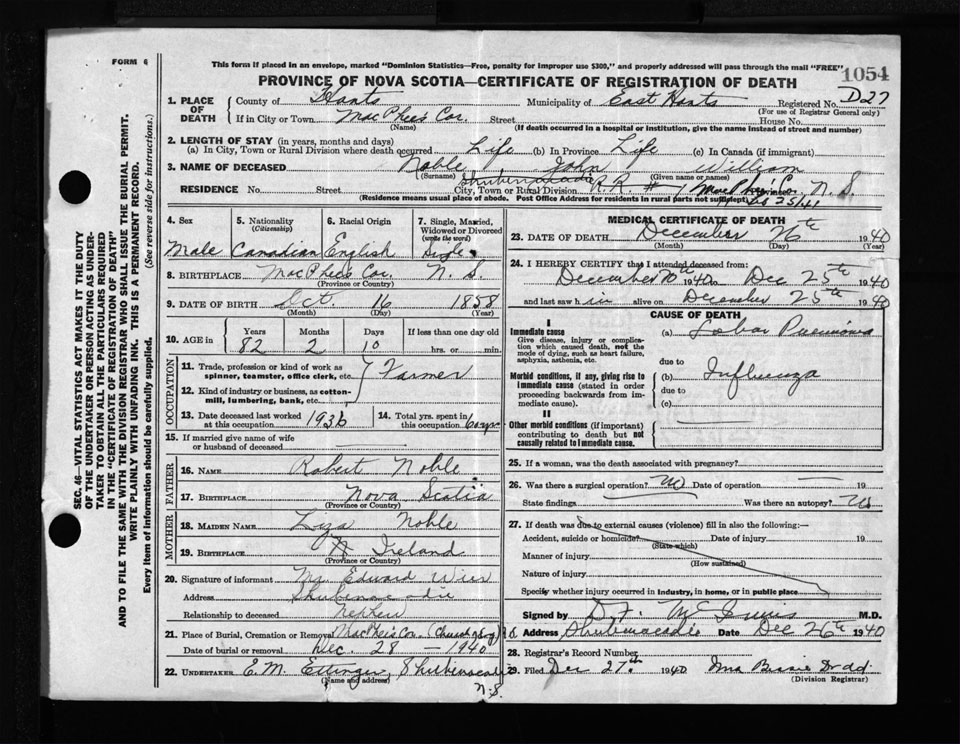 FORM 6
This form if placed in an envelope, marked "Dominion Statistics—Free, penalty for improper use $300," and properly addressed will pass through the mail "FREE"
1054
PROVINCE OF NOVA SCOTIA—CERTIFICATE OF REGISTRATION OF DEATH
SEC. 46—VITAL STATISTICS ACT MAKES IT THE DUTY
OF THE UNDERTAKER OR PERSON ACTING AS UNDER-
TAKER TO OBTAIN ALL THE PARTICULARS REQUIRED
IN THE "CERTIFICATE OF REGISTRATION OF DEATH"
AND TO FILE THE SAME WITH THE DIVISION REGISTRAR WHO SHALL ISSUE THE BURIAL PERMIT.
WRITE PLAINLY WITH UNFADING INK. THIS IS A PERMANENT RECORD.
Every item of Information should be carefully supplied. (See reverse side for instructions.)
1. PLACE OF DEATH
County of Hants Municipality of East Hants Registered No. D27
(For use of Registrar General only)
If in City or Town MacPhee's Cor. Street House No.
(Name) (If death occurred in a hospital or institution, give the name instead of street and number)
2. LENGTH OF STAY (in years, months and days)
(a) In City, Town or Rural Division where death occurred Life (b) In Province Life (c) In Canada (if immigrant)
3. NAME OF DECEASED Noble John William
(Surname) (Given name or names)
RESIDENCE No. Street City, Town or Rural Division Shubenacadie R.R. # 1 N.S.
(Residence means usual place of abode. Post Office Address for residents in rural parts not sufficient)
4. Sex Male
5. Nationality (Citizenship) Canadian
6. Racial Origin English
7. Single, Married, Widowed or Divorced (write the word) Single
8. BIRTHPLACE MacPhee's Cor. N.S.
(Province or Country)
9. DATE OF BIRTH Oct 16 1858
(Month) (Day) (Year)
10. AGE in Years Months Days If less than one day old
82 2 10 hrs. or min.
OCCUPATION
11. Trade, profession or kind of work as spinner, teamster, office clerk, etc. Farmer
12. Kind of industry or business, as cotton-mill, lumbering, bank, etc.
13. Date deceased last worked at this occupation 1936
14. Total yrs. spent in this occupation 60 yrs
15. If married give name of wife or husband of deceased
FATHER
16. NAME Robert Noble
17. BIRTHPLACE Nova Scotia
(Province or Country)
MOTHER
18. MAIDEN NAME Liza Noble
19. BIRTHPLACE Ireland
(Province or Country)
20. Signature of informant Mr. Edward Wier
Address Shubenacadie
Relationship to deceased nephew
21. Place of Burial, Cremation or Removal MacPhee's Cor. N.S.
Date of burial or removal Dec. 28 — 1940
22. UNDERTAKER E.M. Ettinger, Shubenacadie
(Name and address) N.S.
MEDICAL CERTIFICATE OF DEATH
23. DATE OF DEATH December 26th 1940
(Month) (Day) (Year)
24. I HEREBY CERTIFY that I attended deceased from:
December 10th 1940 to Dec 25th 1940
and last saw him alive on December 25th 1940
CAUSE OF DEATH
I
Immediate cause
Give disease, injury or complication which caused death, not the mode of dying, such as heart failure, asphyxia, asthenia, etc.
(a) Lobar Pneumonia
due to
Morbid conditions, if any, giving rise to immediate cause (stated in order proceeding backwards from immediate cause).
(b) Influenza
due to
(c)
II
Other morbid conditions (if important) contributing to death but not causally related to Immediate cause.
25. If a woman, was the death associated with pregnancy?
26. Was there a surgical operation? No Date of operation 19
State findings Was there an autopsy? No
27. If death was due to external causes (violence) fill in also the following:—
Accident, suicide or homicide? Date of injury 19
(State which)
Manner of injury
(How sustained)
Nature of injury
Specify whether injury occurred in Industry, in home, or in public place
Signed by D.F. McInnis M.D.
Address Shubenacadie Date Dec 26th 1940
28. Registrar's Record Number
29. Filed Dec 27th 1940
(Division Registrar)